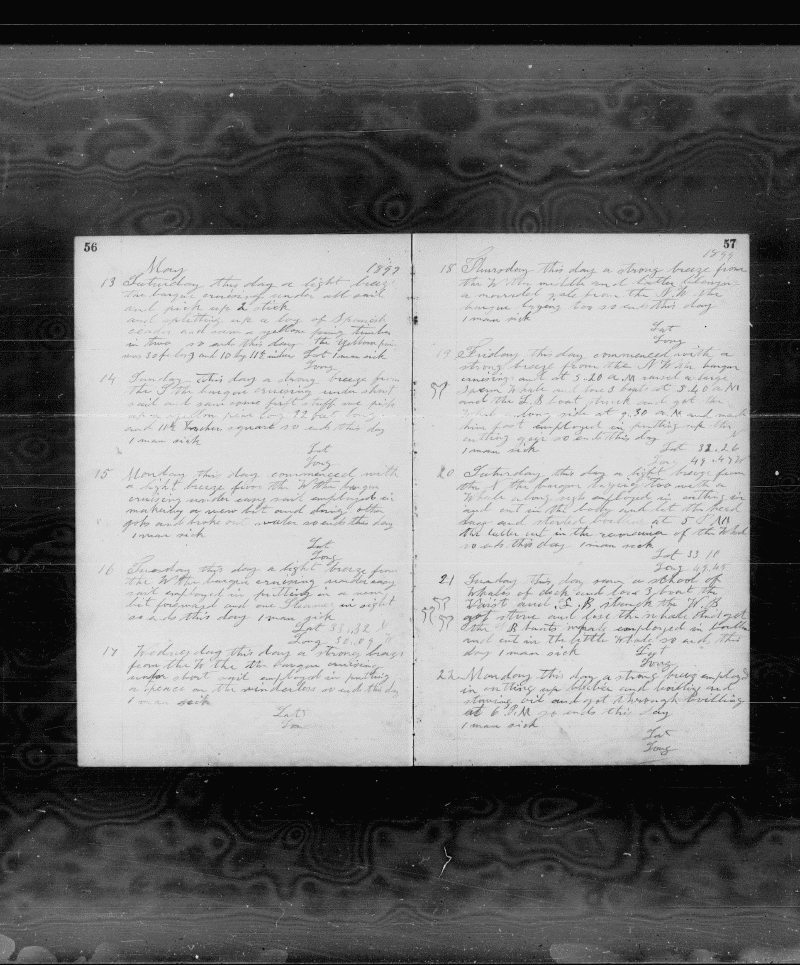 56
May 1899
13 Saturday this day a light breeze
the barque cruising under all sail
and pick up 2 stick
and splitting up a log of Spanish
ceader and sawn a yellow pine timber
in two so ends this day the yellow pine
was 30 ft long and 10 by 11½ inches Lat 1 man sick
Long
14 Sunday this day a strong breeze from
the S the barque cruising under short
sail and saw some stuff and pick
up a yellow pine log 92 feet long
and 11½ inches square so ends this day
1 man sick
Lat
Long
15 Monday this day commenced with
a light breeze from the W the barque
cruising under easy sail employed in
making a new bit and doing other
jobs and broke out water so ends this day
1 man sick
Lat
Long
16 Tuesday this day a light breeze from
the W the barque cruising under easy
sail employed in putting in a new
bit foreward and one Steamer in sight
so ends this day 1 man sick
Lat 33.32 N
Long 50.09 W
17 Wednesday this day a strong breeze
from the W the barque cruising
under short sail employed in putting
a peace on the winderless so ends this day
1 man sick
Lat
Lon
57
1899
18 Thursday this day a strong breeze from
the W the middle and latter
a moderate gale from the N.W. the
barque laying too so ends this day
1 man sick
Lat
Long
19 Friday this day commenced with a
strong breeze from the N.W. the barque
cruising and at 3.20 a M raised a large
Sperm Whale and low 3 boat at 3.40 a M
and the L B boat struck and got the
Whale along side at 9.30 a M and made
him fast employed in putting up the
cutting gear so ends this day
1 man sick Lat 32.26 N
Long 49.49 W
20 Saturday this day a light breeze from
the N the barque laying too with a
Whale along side employed in cutting in
and cut in the body and let the head
and started boiling at 5 P M
the latter cut in the remainder of the Whale
so ends this day 1 man sick
Lat 33 10
Long 49.45
21 Sunday this day saw a school of
Whales of deck and low 3 boat the
Waist and L.B struck the W.B
got stove and loss the whale and got
the B boats whale employed in boiling
and cut in the little Whale so ends this
day 1 man sick Lat
Long
22 Monday this day a strong breeze employed
in cutting up bleber and boiling and
stowing oil and got through boilling
at 6 P.M so ends this day
1 man sick
Lat
Long